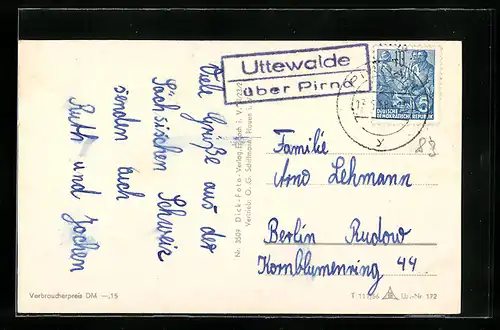 Viele Grüße aus der
Sächsischen Schweiz
senden Euch
Ruth und Jochen
Uttewalde
über Pirna
DEUTSCHE
DEMOKRATISCHE REPUBLIK
Familie
Arno Lehmann
Berlin Rudow
Kornblumenring 44
89
Nr. 3509 Dick-Foto-Verlag
Verbraucherpreis DM —.15
Nr 172